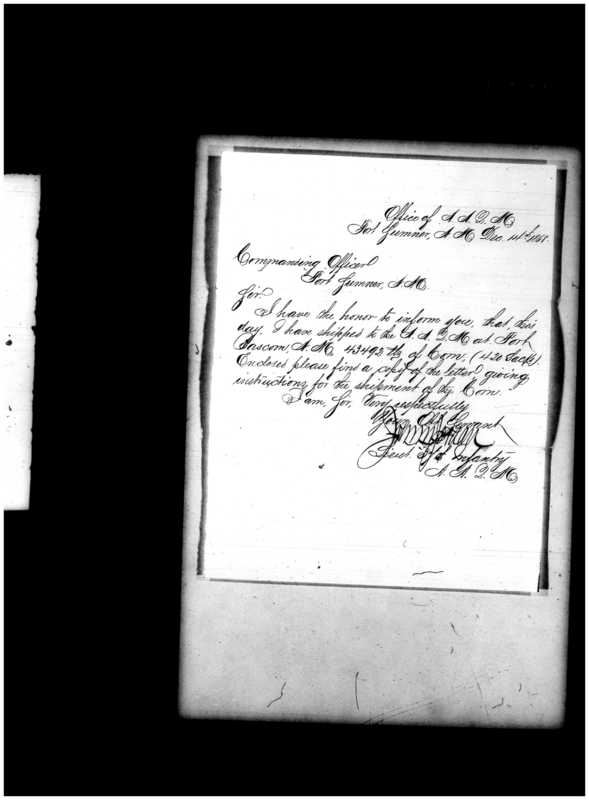 Office of A. A. Q. M.
Fort Sumner, N. M. Dec. 14th, 186
Commanding Officer
Fort Sumner, N. M.
Sir
I have the honor to inform you, that this
day, I have shipped to the A. A. Q. M. at Fort
Bascom, N. M. 43492 lbs of Corn, (420 Sacks)
Enclosed please find a copy of the letter giving
instructions for the shipment of the Corn.
I am, Sir, Very respectfully
Your Obt Servant
Lieut. Infantry
A. A. Q. M.